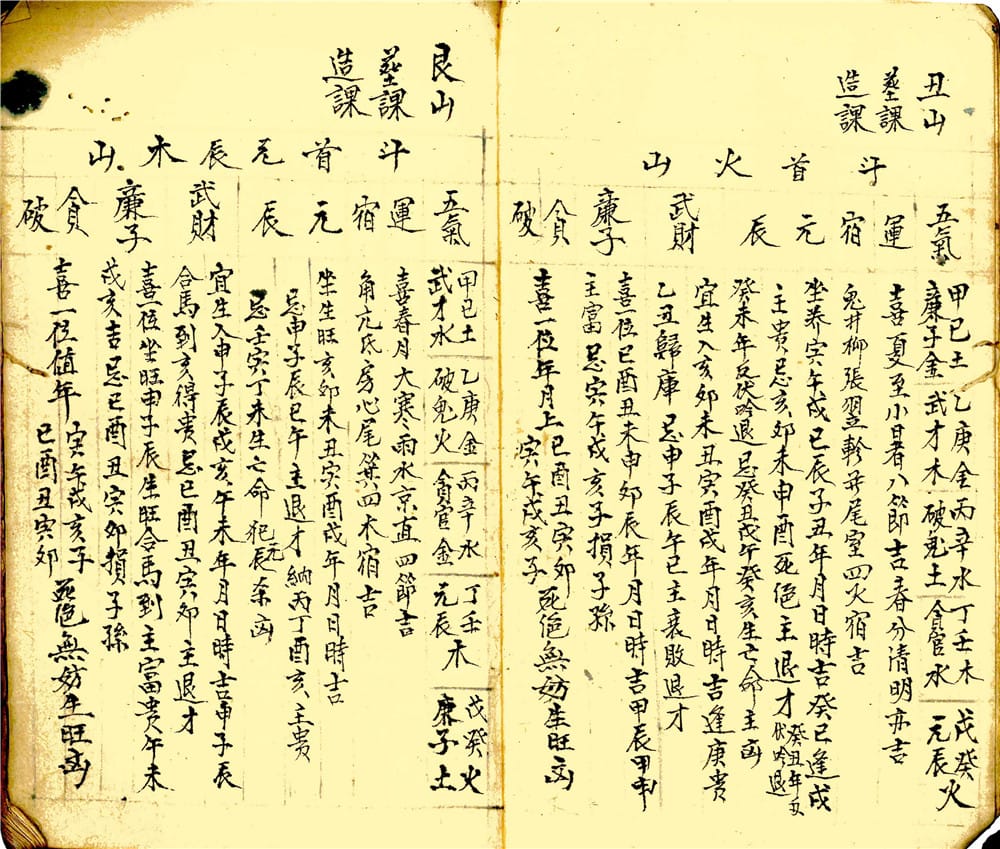 丑山
塟課
造課
斗首火山
五氣
甲己土 廉子金
乙庚金 武才木
丙辛水 破鬼土
丁壬木 貪官水
戊癸火 元辰火
運
喜夏至小暑八節吉春分清明亦吉
宿
鬼井柳張翌軫觜尾室四火宿吉
元
坐养寅午戌巳辰子丑年月日時吉癸巳逢戌
主貴忌亥卯未申酉死绝主退才癸丑年丑伏吟退
辰
癸未年反伏吟退忌癸丑戊午癸亥生亡命主凶
武財
宜生入亥卯未丑寅酉戌年月日時吉逢庚貴
乙丑歸庫 忌申子辰午巳主衰敗退才
廉子
喜一位巳酉丑未申卯辰年月日時吉甲辰甲申
主富 忌寅午戌亥子損子孫
貪破
喜一位年月上巳酉丑寅卯寅午戌亥子死绝無妨生旺凶
艮山
塟課
造課
斗首元辰木山
五氣
甲己土 武才水
乙庚金 破鬼火
丙辛水 貪官金
丁壬木 元辰木
戊癸火 廉子土
運
喜春月大寒雨水京直四節吉
宿
角亢氐房心尾箕四木宿吉
元
坐生旺亥卯未丑寅酉戌年月日時吉
忌申子辰巳午主退才 納丙丁酉亥主貴
辰
忌壬寅丁未生亡命犯元辰杀凶
武財
宜生入申子辰戌亥午未年月日時吉申子辰
合馬到亥得貴忌巳酉丑寅卯主退才
廉子
喜一位坐旺申子辰生旺合馬到主富貴午未
戌亥吉忌巳酉丑寅卯損子孫
貪破
喜一位值年寅午戌亥子巳酉丑寅卯死绝無妨生旺凶